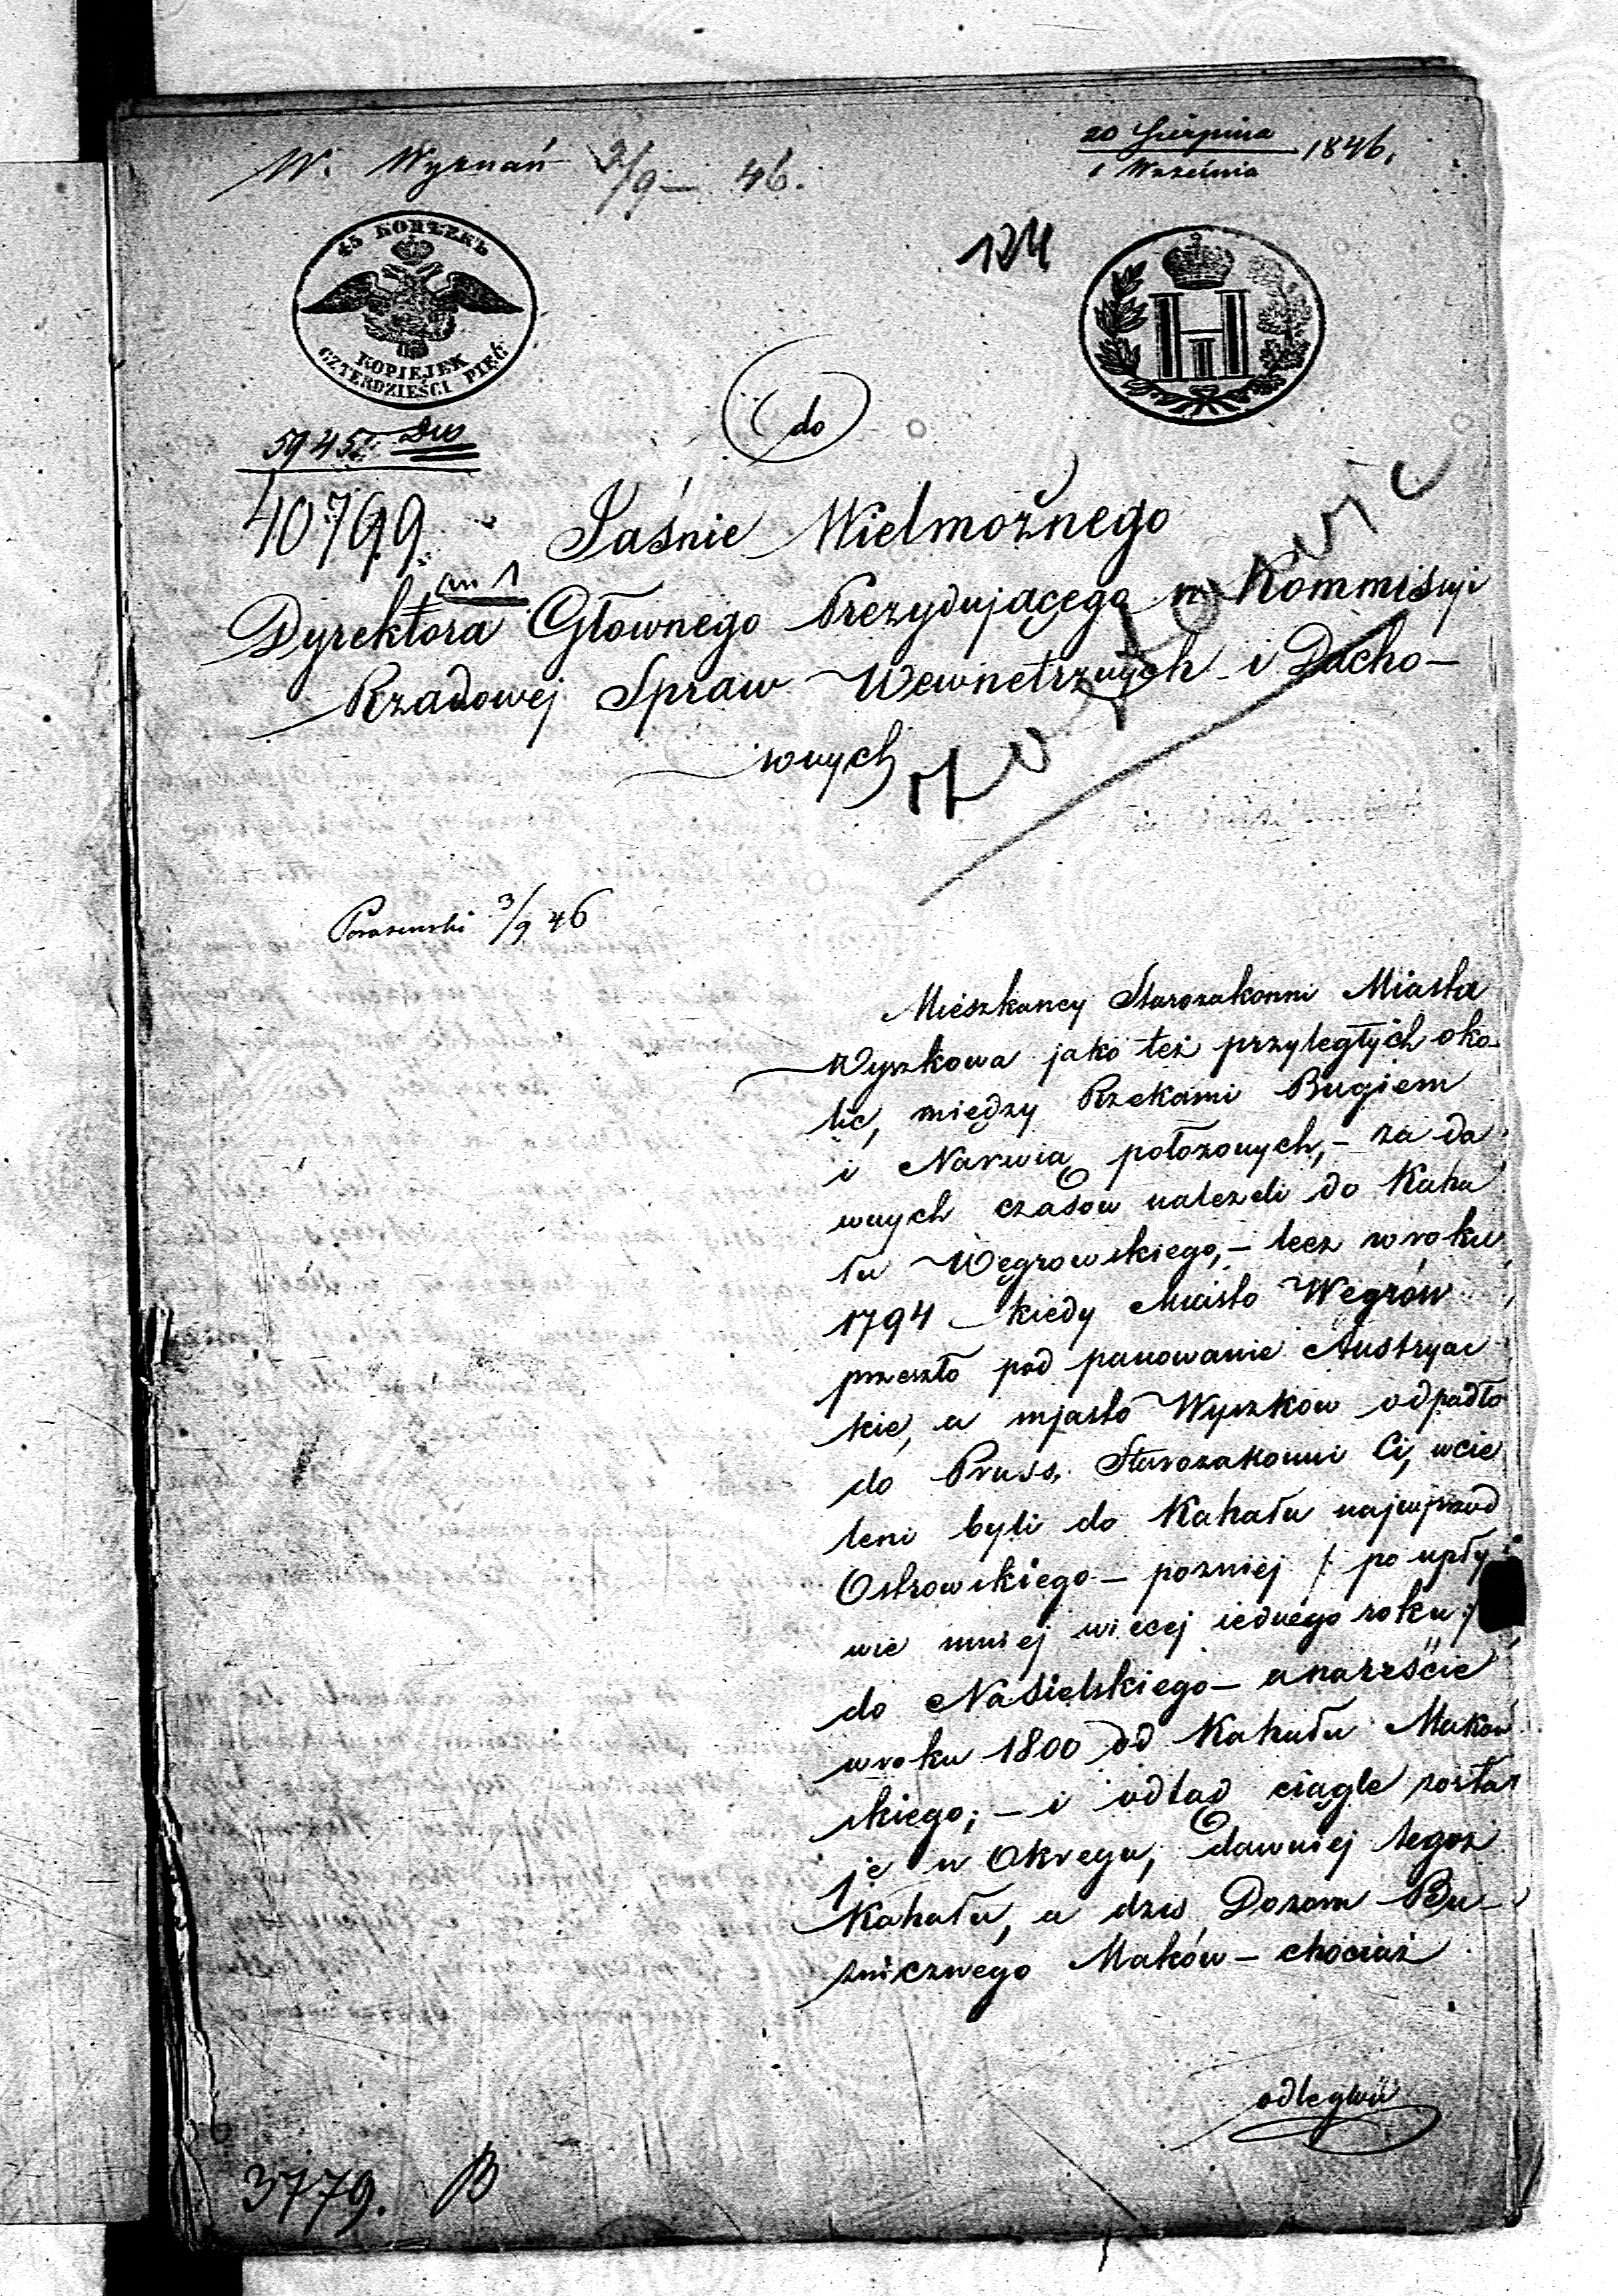 W. Wyznań 2/9 – 46.
20 Sierpnia
1 Września
1846.
124
45 KOPѢEKЪ
KOPIEJEK
CZTERDZIEŚCI PIĘĆ
H I
do
40799.
an 1
Jaśnie Wielmożnego
Dyrektora Głownego Prezydującego w Kommissyi
Rządowej Spraw Wewnetrznych i Ducho-
wnych
3/9 46
Mieszkancy Starozakonni Miasta
Wyszkowa jako też przyległych oko
lic, między Rzekami Bugiem
i Narwią położonych, – za da
wnych czasow należeli do Kaha
łu Węgrowskiego, – lecz w roku
1794 kiedy Miasto Węgrów
przeszło pod panowanie Austryac
kie, a miasto Wyszkow odpadło
do Pruss, Starozakonni Ci, wcie
leni byli do Kahału najwprzod
Ostrowskiego – pozniej /: po upły
wie mniej więcej iednego roku :/
do Nasielskiego – a nareście
w roku 1800 od Kahału Makow
skiego; – i odtąd ciągle zosta
je w Okregu, dawniej tegoż
Kahału, a dziś Dozoru Bu-
żnicznego Maków – chociaż
3779. B